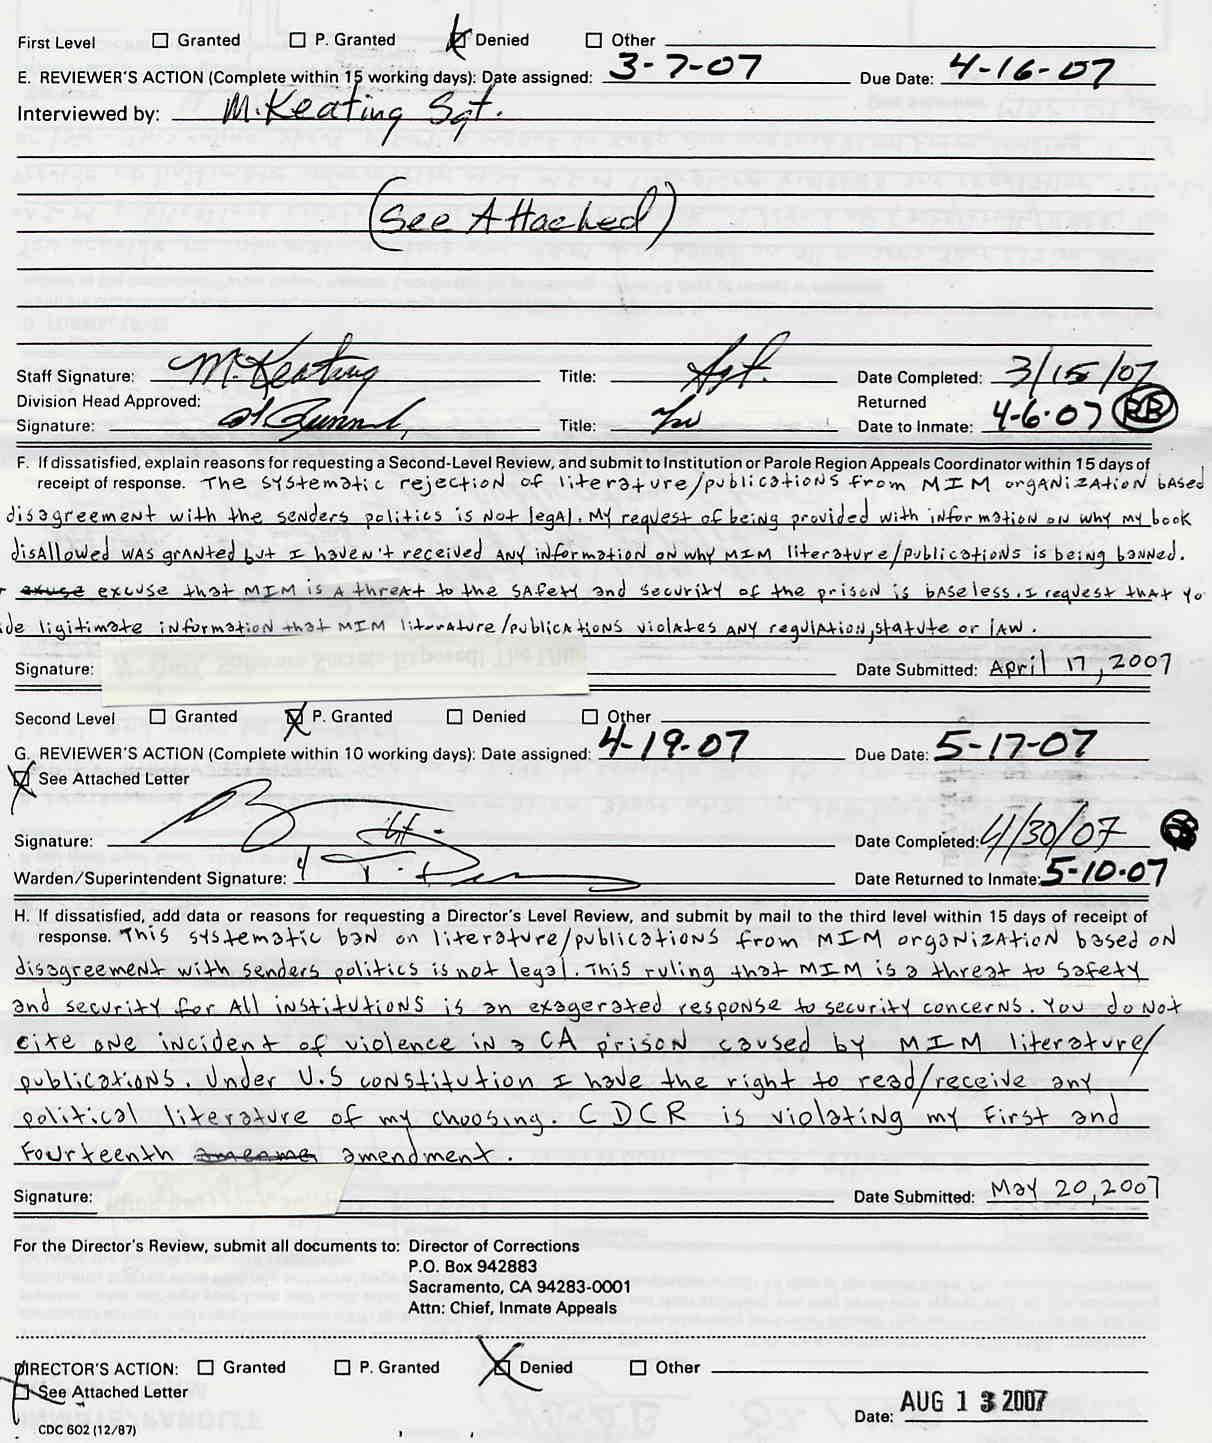 First Level ☐ Granted ☐ P. Granted ☒ Denied ☐ Other
E. REVIEWER'S ACTION (Complete within 15 working days): Date assigned: 3-7-07 Due Date: 4-16-07
Interviewed by: M. Keating Sgt.
(See Attached)
Staff Signature: M. Keating Title: Sgt. Date Completed: 3/15/07
Division Head Approved: Returned
Signature: Title: Date to Inmate: 4-6-07 RB
F. If dissatisfied, explain reasons for requesting a Second-Level Review, and submit to Institution or Parole Region Appeals Coordinator within 15 days of
receipt of response. The systematic rejection of literature/publications from MIM organization based
disagreement with the senders politics is not legal. My request of being provided with information on why my book
disallowed was granted but I haven't received any information on why MIM literature/publications is being banned.
excuse that MIM is a threat to the safety and security of the prison is baseless. I request that yo
ide ligitimate information that MIM literature/publications violates any regulation, statute or law.
Signature: Date Submitted: April 17, 2007
Second Level ☐ Granted ☒ P. Granted ☐ Denied ☐ Other
G. REVIEWER'S ACTION (Complete within 10 working days): Date assigned: 4-19-07 Due Date: 5-17-07
☒ See Attached Letter
Signature: Date Completed: 4/30/07
Warden/Superintendent Signature: Date Returned to Inmate: 5-10-07
H. If dissatisfied, add data or reasons for requesting a Director's Level Review, and submit by mail to the third level within 15 days of receipt of
response. This systematic ban on literature/publications from MIM organization based on
disagreement with senders politics is not legal. This ruling that MIM is a threat to safety
and security for all institutions is an exagerated response to security concerns. You do not
cite one incident of violence in a CA prison caused by MIM literature/
publications. Under U.S constitution I have the right to read/receive any
political literature of my choosing. CDCR is violating my First and
Fourteenth amendment.
Signature: Date Submitted: May 20, 2007
For the Director's Review, submit all documents to: Director of Corrections
P.O. Box 942883
Sacramento, CA 94283-0001
Attn: Chief, Inmate Appeals
DIRECTOR'S ACTION: ☐ Granted ☐ P. Granted ☒ Denied ☐ Other
☒ See Attached Letter
Date: AUG 13 2007
CDC 602 (12/87)